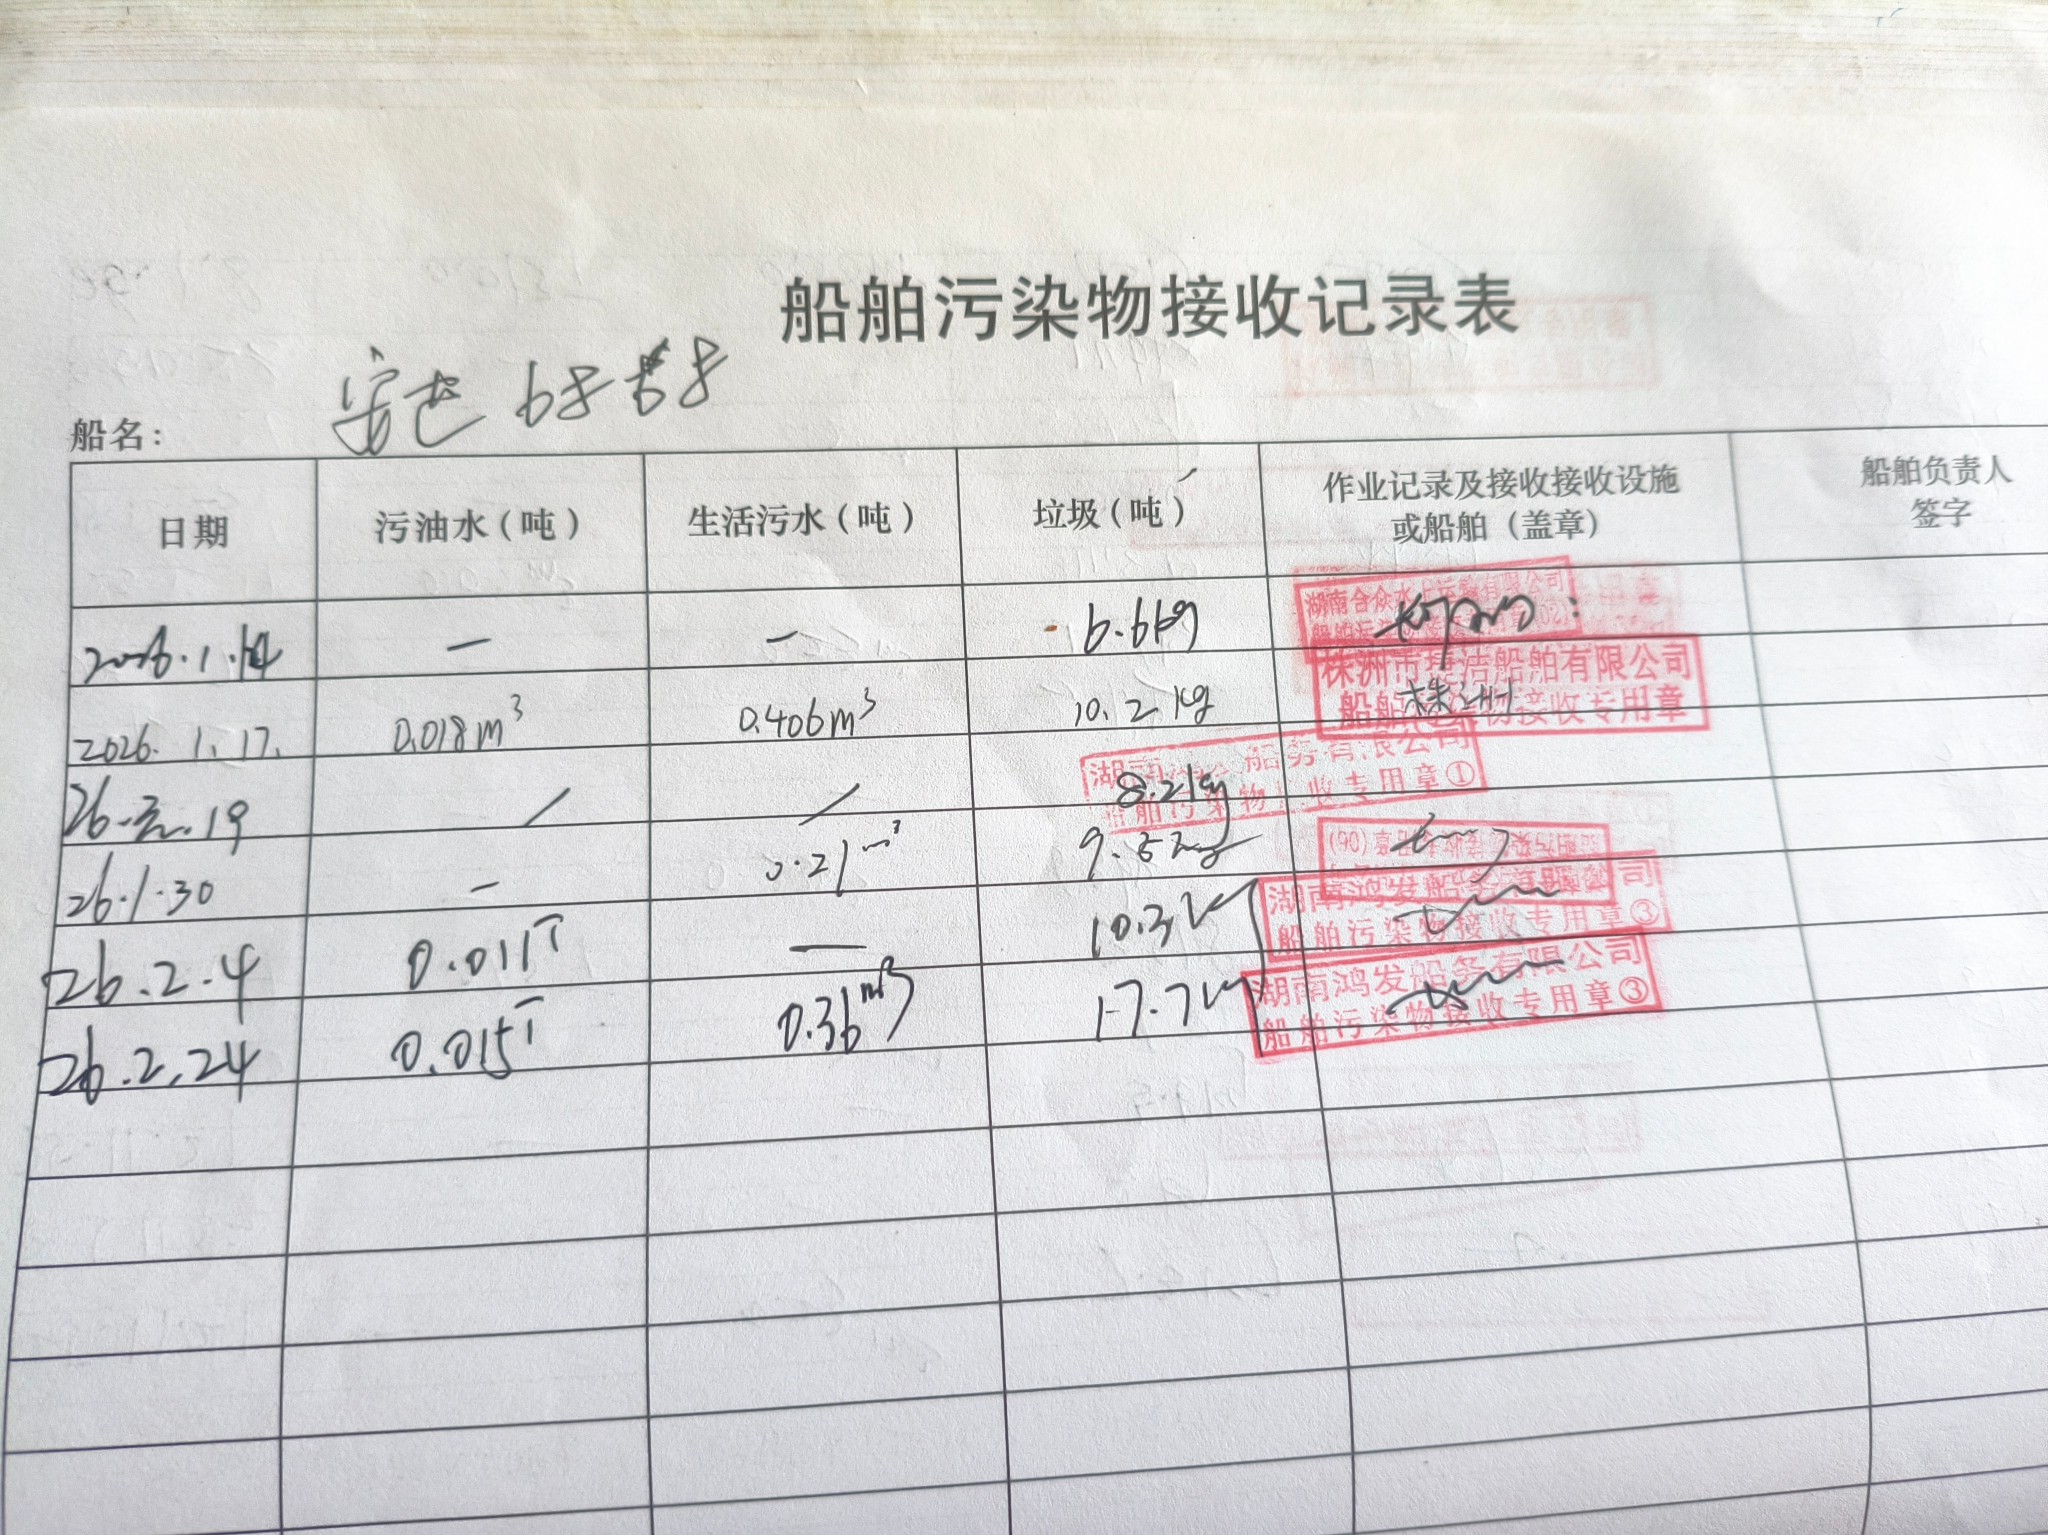 船舶污染物接收记录表
船名：
日期 污油水（吨） 生活污水（吨） 垃圾（吨） 作业记录及接收接收设施或船舶（盖章） 船舶负责人签字
2026.1.14 — — 6.6kg 湖南合众水上运输有限公司
2026.1.17. 0.018m³ 0.406m³ 10.2kg 株洲市捷洁船舶有限公司 船舶污染物接收专用章 株洲
26.元.19 / / 8.2kg 船务有限公司 船舶污染物接收专用章①
26.1.30 — 0.21m³
26.2.4 0.011T — 10.3 湖南鸿发船务有限公司 船舶污染物接收专用章③
26.2.24 0.015T 0.36m³ 17.7 湖南鸿发船务有限公司 船舶污染物接收专用章③